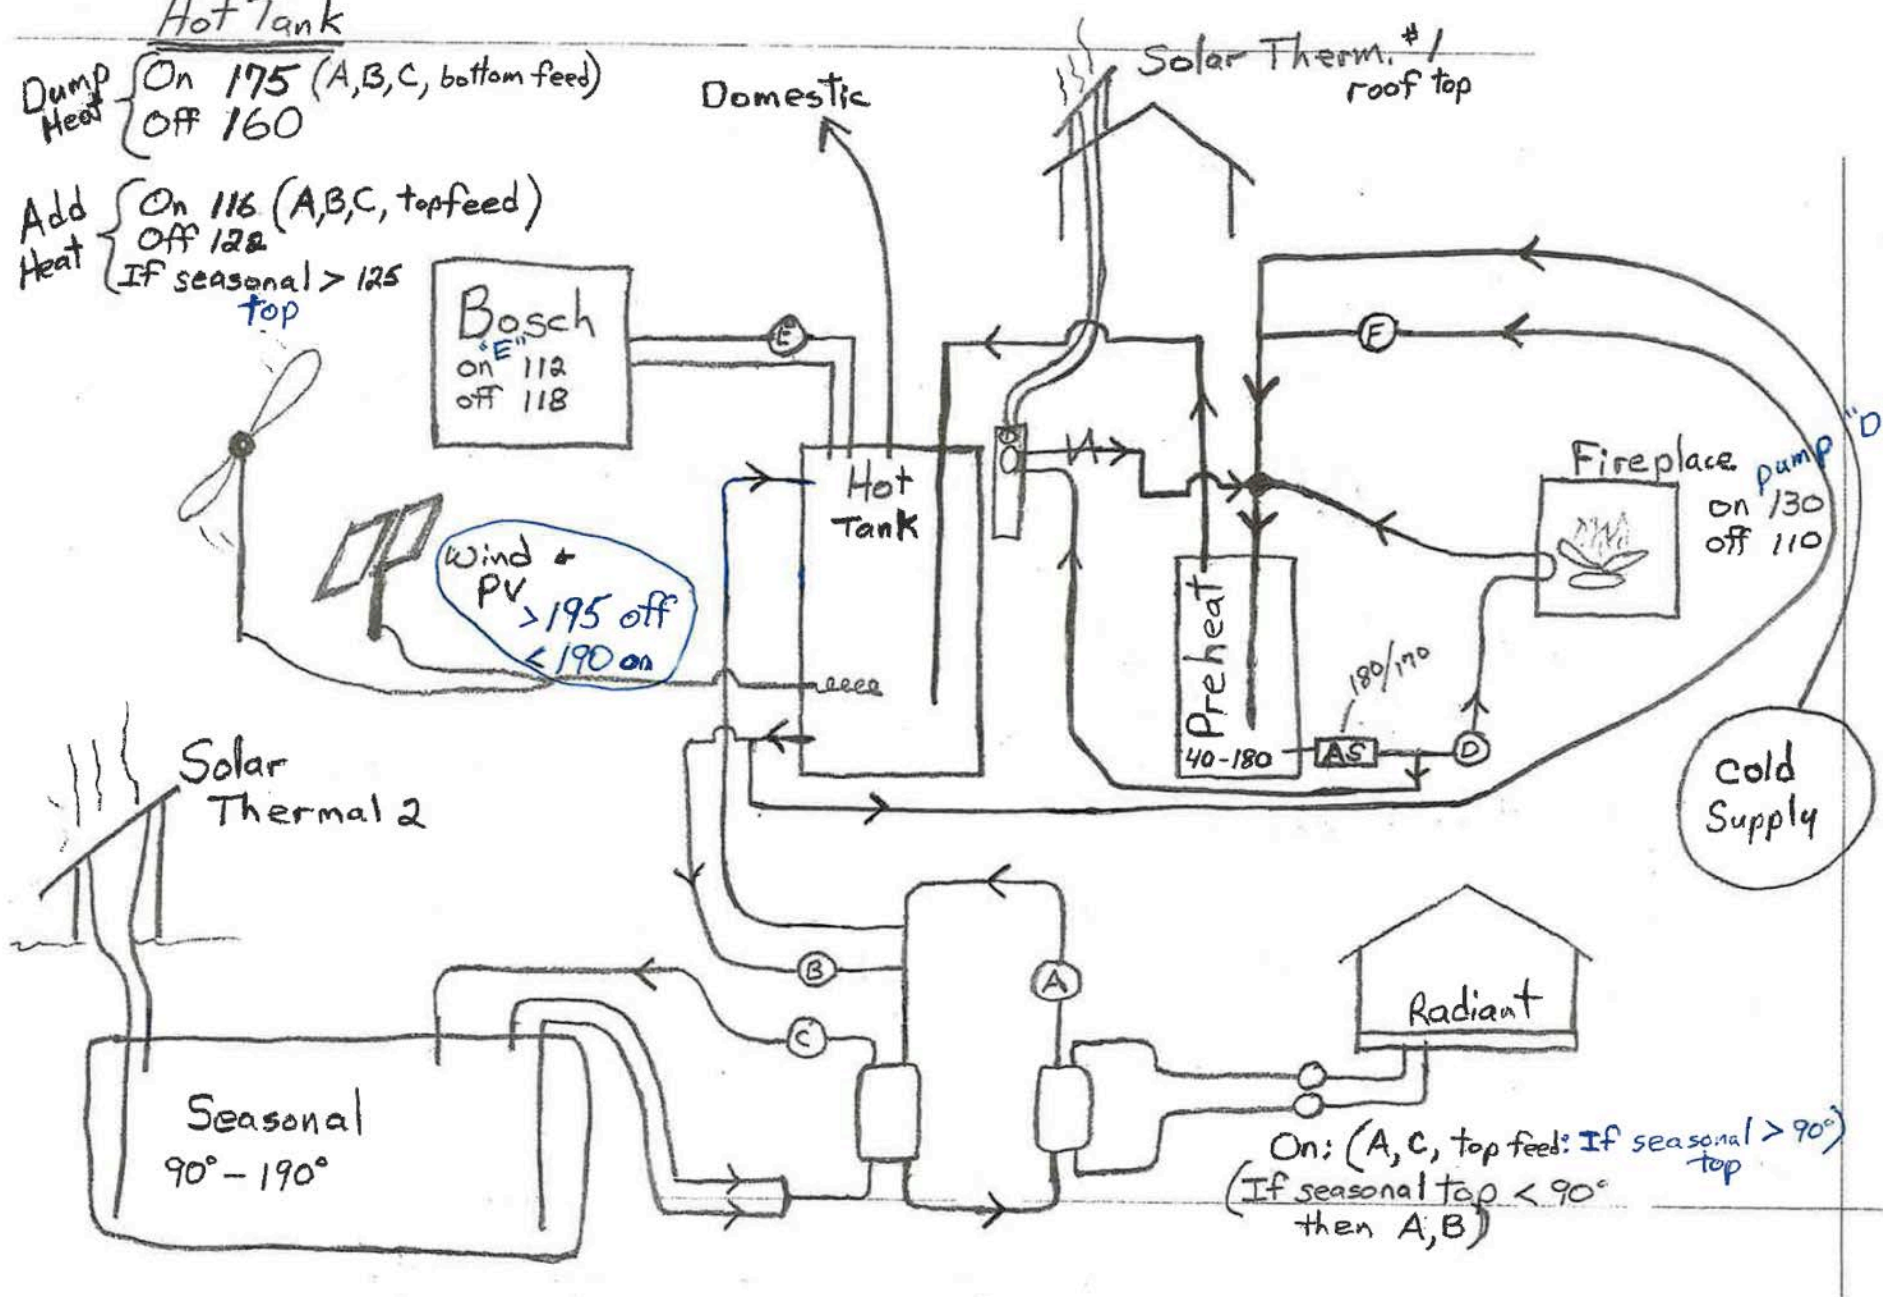 Hot Tank
Dump Heat
On 175 (A,B,C, bottom feed)
Off 160
Add Heat
On 116 (A,B,C, top feed)
Off 122
If seasonal > 125
top
Domestic
Solar Therm. #1
roof top
Bosch
on "E" 112
off 118
E
F
Hot
Tank
Wind +
PV
>195 off
<190 on
Fireplace
pump "D"
on 130
off 110
Preheat
40-180
180/170
AS
D
Cold
Supply
Solar
Thermal 2
B
A
C
Radiant
Seasonal
90°-190°
On: (A,C, top feed: If seasonal > 90°)
top
(If seasonal top < 90°
then A,B)